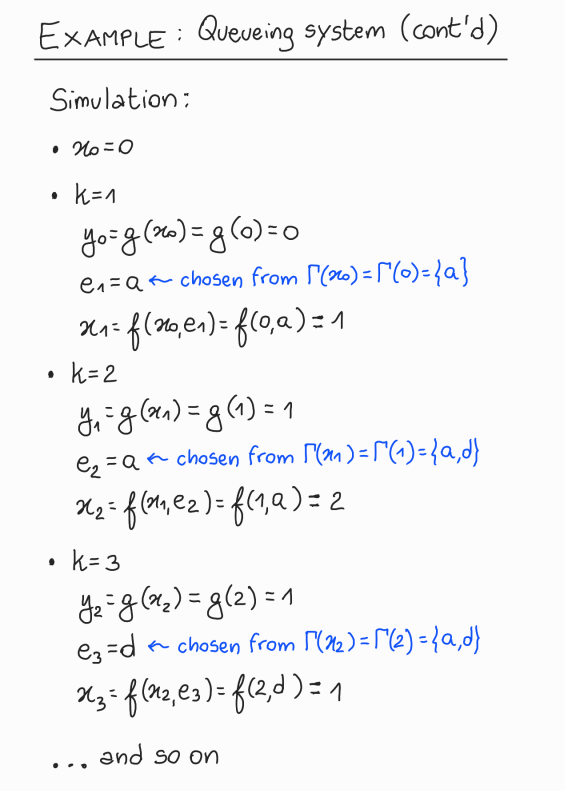 EXAMPLE : Queueing system (cont'd)
Simulation:
• x₀=0
• k=1
y₀=g(x₀)=g(0)=0
e₁=a ← chosen from Γ(x₀)=Γ(0)={a}
x₁=f(x₀,e₁)=f(0,a)=1
• k=2
y₁=g(x₁)=g(1)=1
e₂=a ← chosen from Γ(x₁)=Γ(1)={a,d}
x₂=f(x₁,e₂)=f(1,a)=2
• k=3
y₂=g(x₂)=g(2)=1
e₃=d ← chosen from Γ(x₂)=Γ(2)={a,d}
x₃=f(x₂,e₃)=f(2,d)=1
... and so on